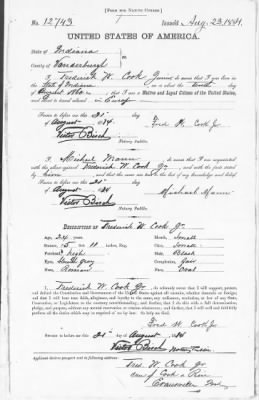 [FORM FOR NATIVE CITIZEN.]
No. 12743 Issued Aug. 23. 1884
UNITED STATES OF AMERICA.
State of Indiana
County of Vanderburgh
I, Frederick W. Cook Junior do swear that I was born in
the State of Indiana on or about the day
of August 1860; that I am a Native and Loyal Citizen of the United States,
and about to travel abroad in Europe
Sworn to before me this 21" day
of August 1884 Fred W. Cook Jr.
Victor Bisch
Notary Public.
I, Michael Mann do swear that I am acquainted
with the above named Frederick W. Cook Jr., and with the facts stated
by him and that the same are true to the best of my knowledge and belief.
Sworn to before me this 21" day
of August 1884 Michael Mann
Victor Bisch
Notary Public.
DESCRIPTION OF Frederick W. Cook Jr
Age, 24 years Mouth, Small
Stature, 5 feet 11 inches, Eng. Chin, Small
Forehead, high Hair, Black
Eyes, grey Complexion, fair
Nose, Roman Face, Oval
I, Frederick W. Cook Jr, do solemnly swear that I will support, protect,
and defend the Constitution and Government of the United States against all enemies, whether domestic or foreign;
and that I will bear true faith, allegiance, and loyalty to the same, any ordinance, resolution, or law of any State,
Convention, or Legislature to the contrary notwithstanding; and further, that I do this with a full determination,
pledge, and purpose, without any mental reservation or evasion whatsoever; and further, that I will well and faithfully
perform all the duties which may be required of me by law: So help me God.
Fred W. Cook Jr
Sworn to before me this 21" day of August 1884
Victor Bisch Notary Public.
Applicant desires passport sent to following address:
Fred. W. Cook Jr
Care of Cook &
Evansville Ind